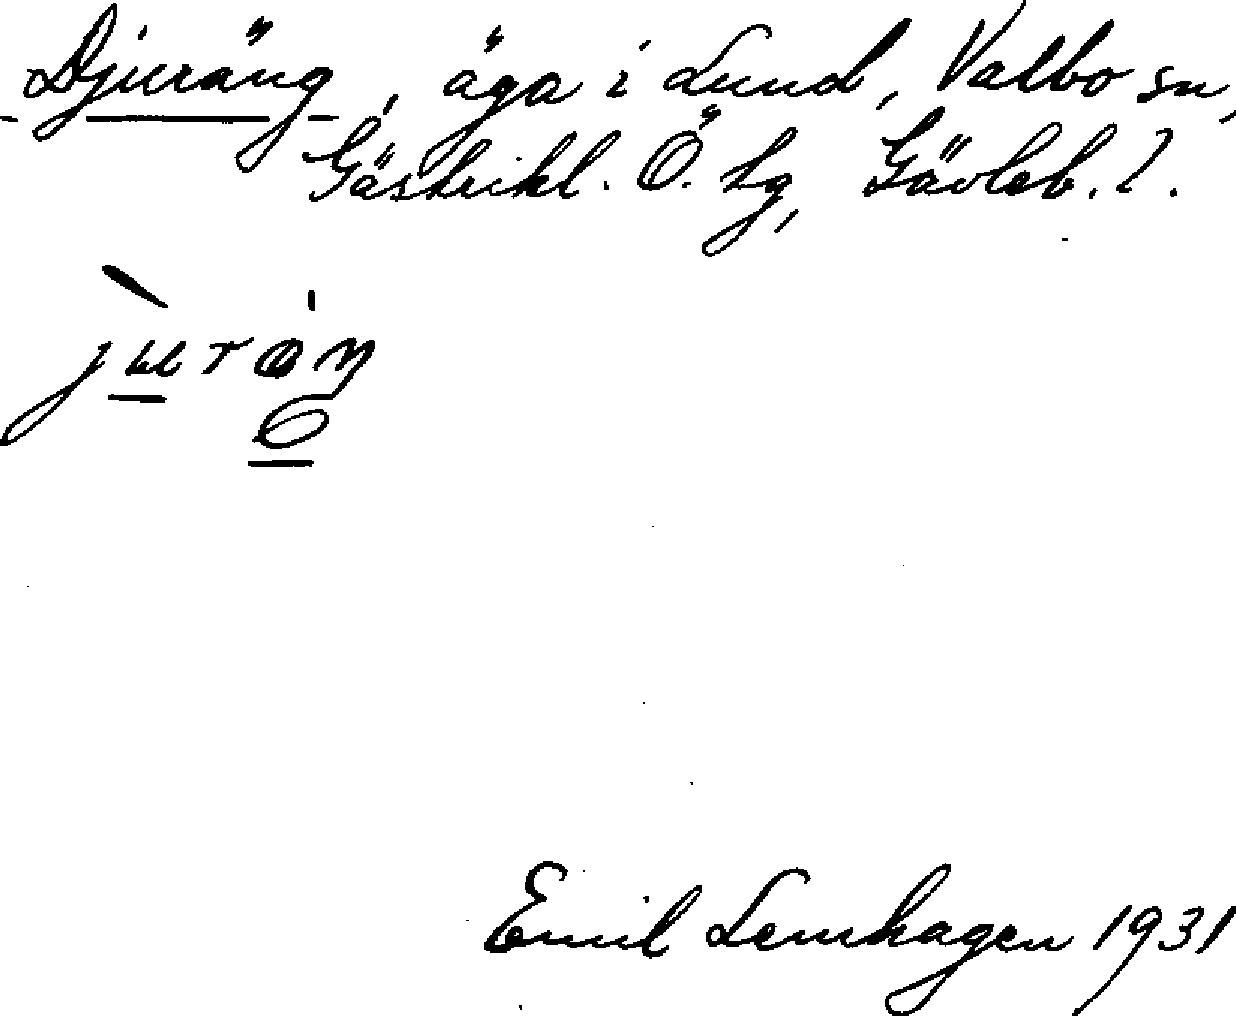 Djuräng, äga i Lund, Valbo sn,
Gästrikl. Ö. tg, Gävleb. l.
Emil Lemhagen 1931